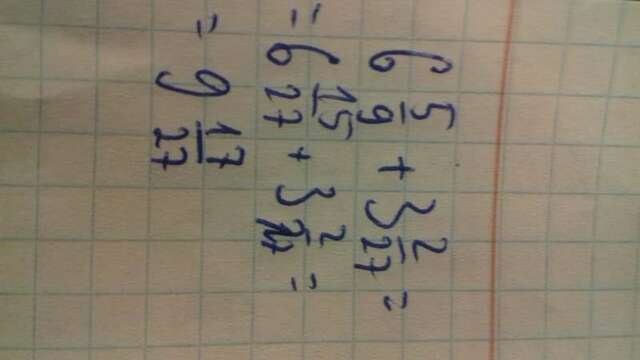 6 5/9 + 3 2/27 =
= 6 15/27 + 3 2/27 =
= 9 17/27